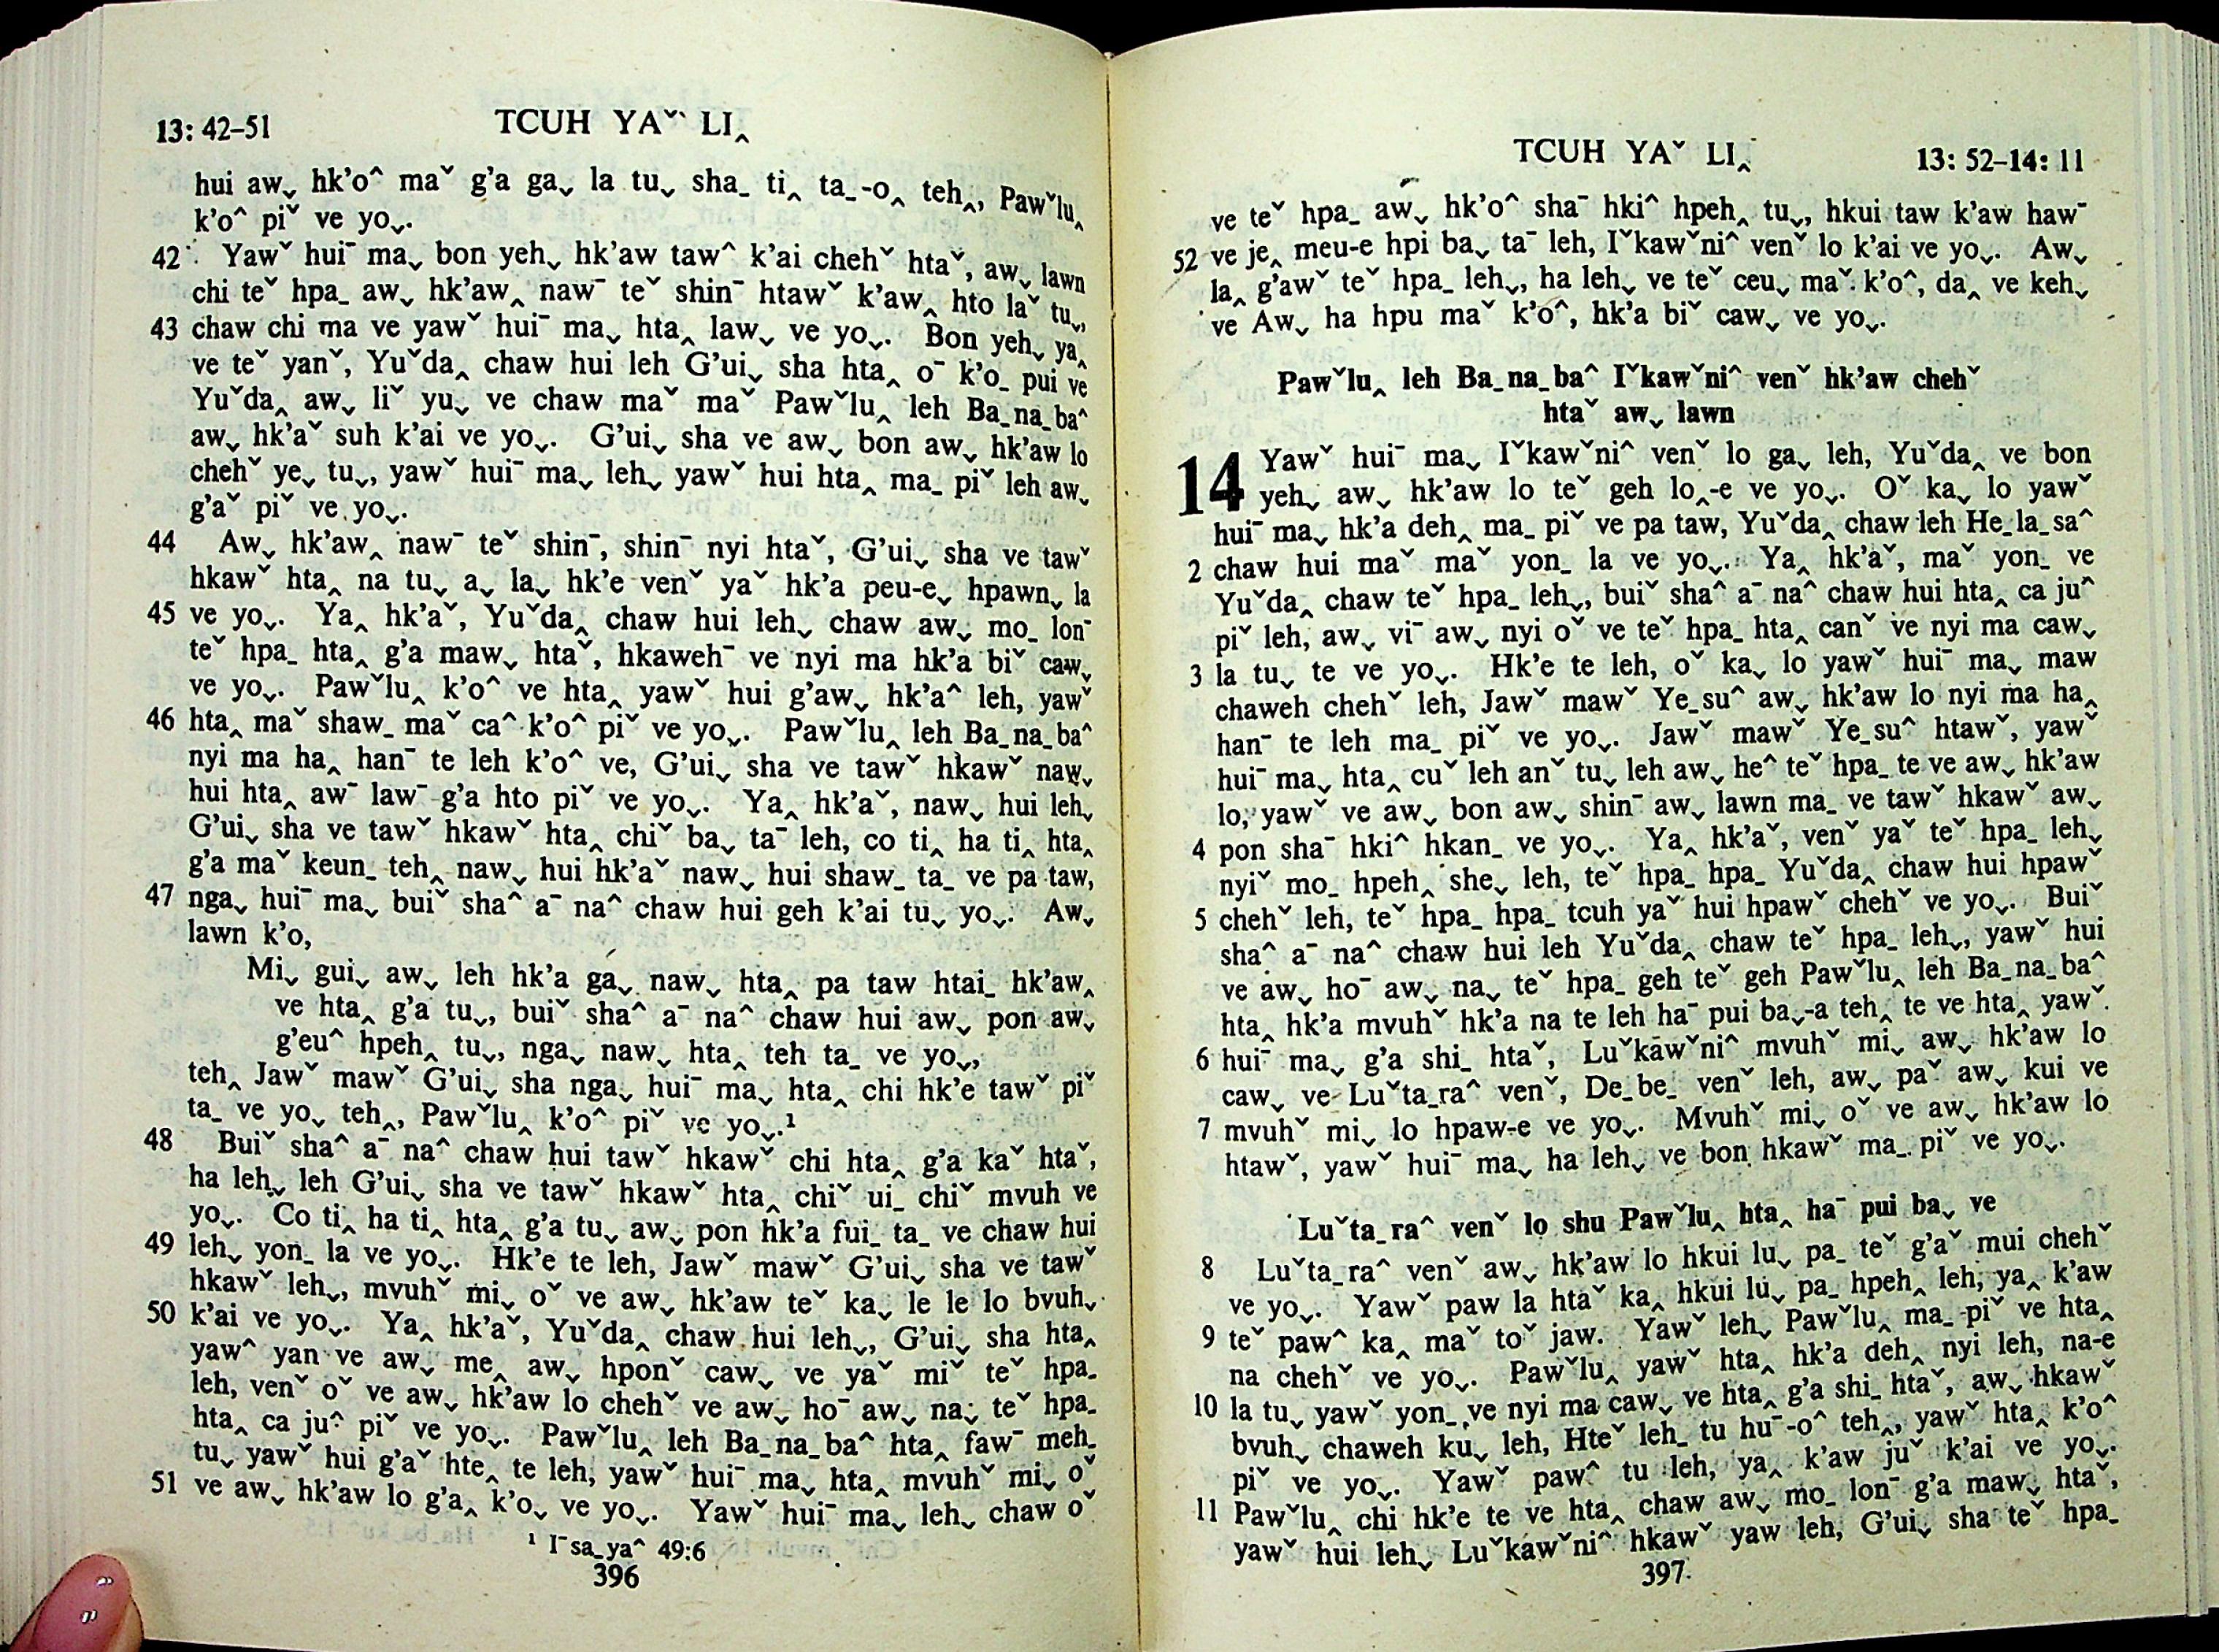 13: 42–51 TCUH YAˇ LI‸
hui aw˯ hk'oˆ maˇ g'a ga˯ la tu˯ sha_ ti‸ ta_-o‸ teh‸, Pawˇlu‸
k'oˆ piˇ ve yo˯.
42 Yawˇ huiˉ ma˯ bon yeh˯ hk'aw tawˆ k'ai chehˇ htaˇ, aw˯ lawn
chi teˇ hpa_ aw˯ hk'aw‸ nawˉ teˇ shinˉ htawˇ k'aw‸ hto laˇ tu˯,
43 chaw chi ma ve yawˇ huiˉ ma˯ hta‸ law˯ ve yo˯. Bon yeh˯ ya‸
ve teˇ yanˇ, Yuˇda‸ chaw hui leh G'ui˯ sha hta‸ oˉ k'o_ pui ve
Yuˇda‸ aw˯ liˇ yu˯ ve chaw maˇ maˇ Pawˇlu‸ leh Ba_na_baˆ
aw˯ hk'aˇ suh k'ai ve yo˯. G'ui˯ sha ve aw˯ bon aw˯ hk'aw lo
chehˇ ye˯ tu˯, yawˇ huiˉ ma˯ leh˯ yawˇ hui hta‸ ma_ piˇ leh aw˯
g'aˇ piˇ ve yo˯.
44 Aw˯ hk'aw‸ nawˉ teˇ shinˉ, shinˉ nyi htaˇ, G'ui˯ sha ve tawˇ
hkawˇ hta‸ na tu˯ a˯ la˯ hk'e venˇ yaˇ hk'a peu-e˯ hpawn˯ la
45 ve yo˯. Ya‸ hk'aˇ, Yuˇda‸ chaw hui leh˯ chaw aw˯ mo_ lonˉ
teˇ hpa_ hta‸ g'a maw˯ htaˇ, hkawehˉ ve nyi ma hk'a biˇ caw˯
ve yo˯. Pawˇlu‸ k'oˆ ve hta‸ yawˇ hui g'aw˯ hk'aˆ leh, yawˇ
46 hta‸ maˇ shaw_ maˇ caˆ k'oˆ piˇ ve yo˯. Pawˇlu‸ leh Ba_na_baˆ
nyi ma ha‸ hanˉ te leh k'oˆ ve, G'ui˯ sha ve tawˇ hkawˇ naw˯
hui hta‸ awˉ lawˉ g'a hto piˇ ve yo˯. Ya‸ hk'aˇ, naw˯ hui leh˯
G'ui˯ sha ve tawˇ hkawˇ hta‸ chiˇ ba˯ taˉ leh, co ti‸ ha ti‸ hta‸
g'a maˇ keun_ teh‸ naw˯ hui hk'aˇ naw˯ hui shaw_ ta_ ve pa taw,
47 nga˯ huiˉ ma˯ buiˇ shaˆ aˉ naˆ chaw hui geh k'ai tu˯ yo˯. Aw˯
lawn k'o,
Mi˯ gui˯ aw˯ leh hk'a ga˯ naw˯ hta‸ pa taw htai_ hk'aw‸
ve hta‸ g'a tu˯, buiˇ shaˆ aˉ naˆ chaw hui aw˯ pon aw˯
g'euˆ hpeh‸ tu˯, nga˯ naw˯ hta‸ teh ta_ ve yo˯,
teh‸ Jawˇ mawˇ G'ui˯ sha nga˯ huiˉ ma˯ hta‸ chi hk'e tawˇ piˇ
ta_ ve yo˯ teh‸, Pawˇlu‸ k'oˆ piˇ ve yo˯.¹
48 Buiˇ shaˆ aˉ naˆ chaw hui tawˇ hkawˇ chi hta‸ g'a kaˇ htaˇ,
ha leh˯ leh G'ui˯ sha ve tawˇ hkawˇ hta‸ chiˇ ui_ chiˇ mvuh ve
yo˯. Co ti‸ ha ti‸ hta‸ g'a tu˯ aw˯ pon hk'a fui_ ta_ ve chaw hui
49 leh˯ yon_ la ve yo˯. Hk'e te leh, Jawˇ mawˇ G'ui˯ sha ve tawˇ
hkawˇ leh˯, mvuhˇ mi˯ oˇ ve aw˯ hk'aw teˇ ka˯ le le lo bvuh˯
50 k'ai ve yo˯. Ya‸ hk'aˇ, Yuˇda‸ chaw hui leh˯, G'ui˯ sha hta‸
yawˆ yan ve aw˯ me‸ aw˯ hponˇ caw˯ ve yaˇ miˇ teˇ hpa_
leh, venˇ oˇ ve aw˯ hk'aw lo chehˇ ve aw˯ hoˉ aw˯ na˯ teˇ hpa_
hta‸ ca juˆ piˇ ve yo˯. Pawˇlu‸ leh Ba_na_baˆ hta‸ fawˉ meh_
tu˯ yawˇ hui g'aˇ hte‸ te leh, yawˇ huiˉ ma˯ hta‸ mvuhˇ mi˯ oˇ
51 ve aw˯ hk'aw lo g'a‸ k'o˯ ve yo˯. Yawˇ huiˉ ma˯ leh˯ chaw oˇ
¹ Iˉsa_yaˆ 49:6
396
TCUH YAˇ LI‸ 13: 52–14: 11
ve teˇ hpa_ aw˯ hk'oˆ shaˉ hkiˆ hpeh‸ tu˯, hkui taw k'aw hawˉ
52 ve je‸ meu-e hpi ba˯ taˉ leh, Iˇkawˇniˆ venˇ lo k'ai ve yo˯. Aw˯
la‸ g'awˇ teˇ hpa_ leh˯, ha leh˯ ve teˇ ceu˯ maˇ k'oˆ, da‸ ve keh˯
ve Aw˯ ha hpu maˇ k'oˆ, hk'a biˇ caw˯ ve yo˯.
Pawˇlu‸ leh Ba_na_baˆ Iˇkawˇniˆ venˇ hk'aw chehˇ
htaˇ aw˯ lawn
14 Yawˇ huiˉ ma˯ Iˇkawˇniˆ venˇ lo ga˯ leh, Yuˇda‸ ve bon
yeh˯ aw˯ hk'aw lo teˇ geh lo‸-e ve yo˯. Oˇ ka˯ lo yawˇ
huiˉ ma˯ hk'a deh‸ ma_ piˇ ve pa taw, Yuˇda‸ chaw leh He_la_saˆ
2 chaw hui maˇ maˇ yon_ la ve yo˯. Ya‸ hk'aˇ, maˇ yon_ ve
Yuˇda‸ chaw teˇ hpa_ leh˯, buiˇ shaˆ aˉ naˆ chaw hui hta‸ ca juˆ
piˇ leh, aw˯ viˉ aw˯ nyi oˇ ve teˇ hpa_ hta‸ canˇ ve nyi ma caw˯
3 la tu˯ te ve yo˯. Hk'e te leh, oˇ ka˯ lo yawˇ huiˉ ma˯ maw
chaweh chehˇ leh, Jawˇ mawˇ Ye_suˆ aw˯ hk'aw lo nyi ma ha‸
hanˉ te leh ma_ piˇ ve yo˯. Jawˇ mawˇ Ye_suˆ htawˇ, yawˇ
huiˉ ma˯ hta‸ cuˇ leh anˇ tu˯ leh aw˯ heˆ teˇ hpa_ te ve aw˯ hk'aw
lo, yawˇ ve aw˯ bon aw˯ shinˉ aw˯ lawn ma_ ve tawˇ hkawˇ aw˯
4 pon shaˉ hkiˆ hkan_ ve yo˯. Ya‸ hk'aˇ, venˇ yaˇ teˇ hpa_ leh˯
nyiˇ mo_ hpeh‸ she˯ leh, teˇ hpa_ hpa_ Yuˇda‸ chaw hui hpawˇ
5 chehˇ leh, teˇ hpa_ hpa_ tcuh yaˇ hui hpawˇ chehˇ ve yo˯. Buiˇ
shaˆ aˉ naˆ chaw hui leh Yuˇda‸ chaw teˇ hpa_ leh˯, yawˇ hui
ve aw˯ hoˉ aw˯ na˯ teˇ hpa_ geh teˇ geh Pawˇlu‸ leh Ba_na_baˆ
hta‸ hk'a mvuhˇ hk'a na te leh haˉ pui ba˯-a teh‸ te ve hta‸ yawˇ
6 huiˉ ma˯ g'a shi_ htaˇ, Luˇkawˇniˆ mvuhˇ mi˯ aw˯ hk'aw lo
caw˯ ve Luˇta_raˆ venˇ, De_be_ venˇ leh, aw˯ paˇ aw˯ kui ve
7 mvuhˇ mi˯ lo hpaw-e ve yo˯. Mvuhˇ mi˯ oˇ ve aw˯ hk'aw lo
htawˇ, yawˇ huiˉ ma˯ ha leh˯ ve bon hkawˇ ma_ piˇ ve yo˯.
Luˇta_raˆ venˇ lo shu Pawˇlu‸ hta‸ haˉ pui ba˯ ve
8 Luˇta_raˆ venˇ aw˯ hk'aw lo hkui lu˯ pa_ teˇ g'aˇ mui chehˇ
ve yo˯. Yawˇ paw la htaˇ ka‸ hkui lu˯ pa_ hpeh‸ leh, ya‸ k'aw
9 teˇ pawˆ ka‸ maˇ toˇ jaw. Yawˇ leh˯ Pawˇlu‸ ma_ piˇ ve hta‸
na chehˇ ve yo˯. Pawˇlu‸ yawˇ hta‸ hk'a deh‸ nyi leh, na-e
10 la tu˯ yawˇ yon_ ve nyi ma caw˯ ve hta‸ g'a shi_ htaˇ, aw˯ hkawˇ
bvuh˯ chaweh ku˯ leh, Hteˇ leh_ tu huˉ-oˆ teh‸, yawˇ hta‸ k'oˆ
piˇ ve yo˯. Yawˇ pawˆ tu leh, ya‸ k'aw juˇ k'ai ve yo˯.
11 Pawˇlu‸ chi hk'e te ve hta‸ chaw aw˯ mo_ lonˉ g'a maw˯ htaˇ,
yawˇ hui leh˯ Luˇkawˇniˆ hkawˇ yaw leh, G'ui˯ sha teˇ hpa_
397